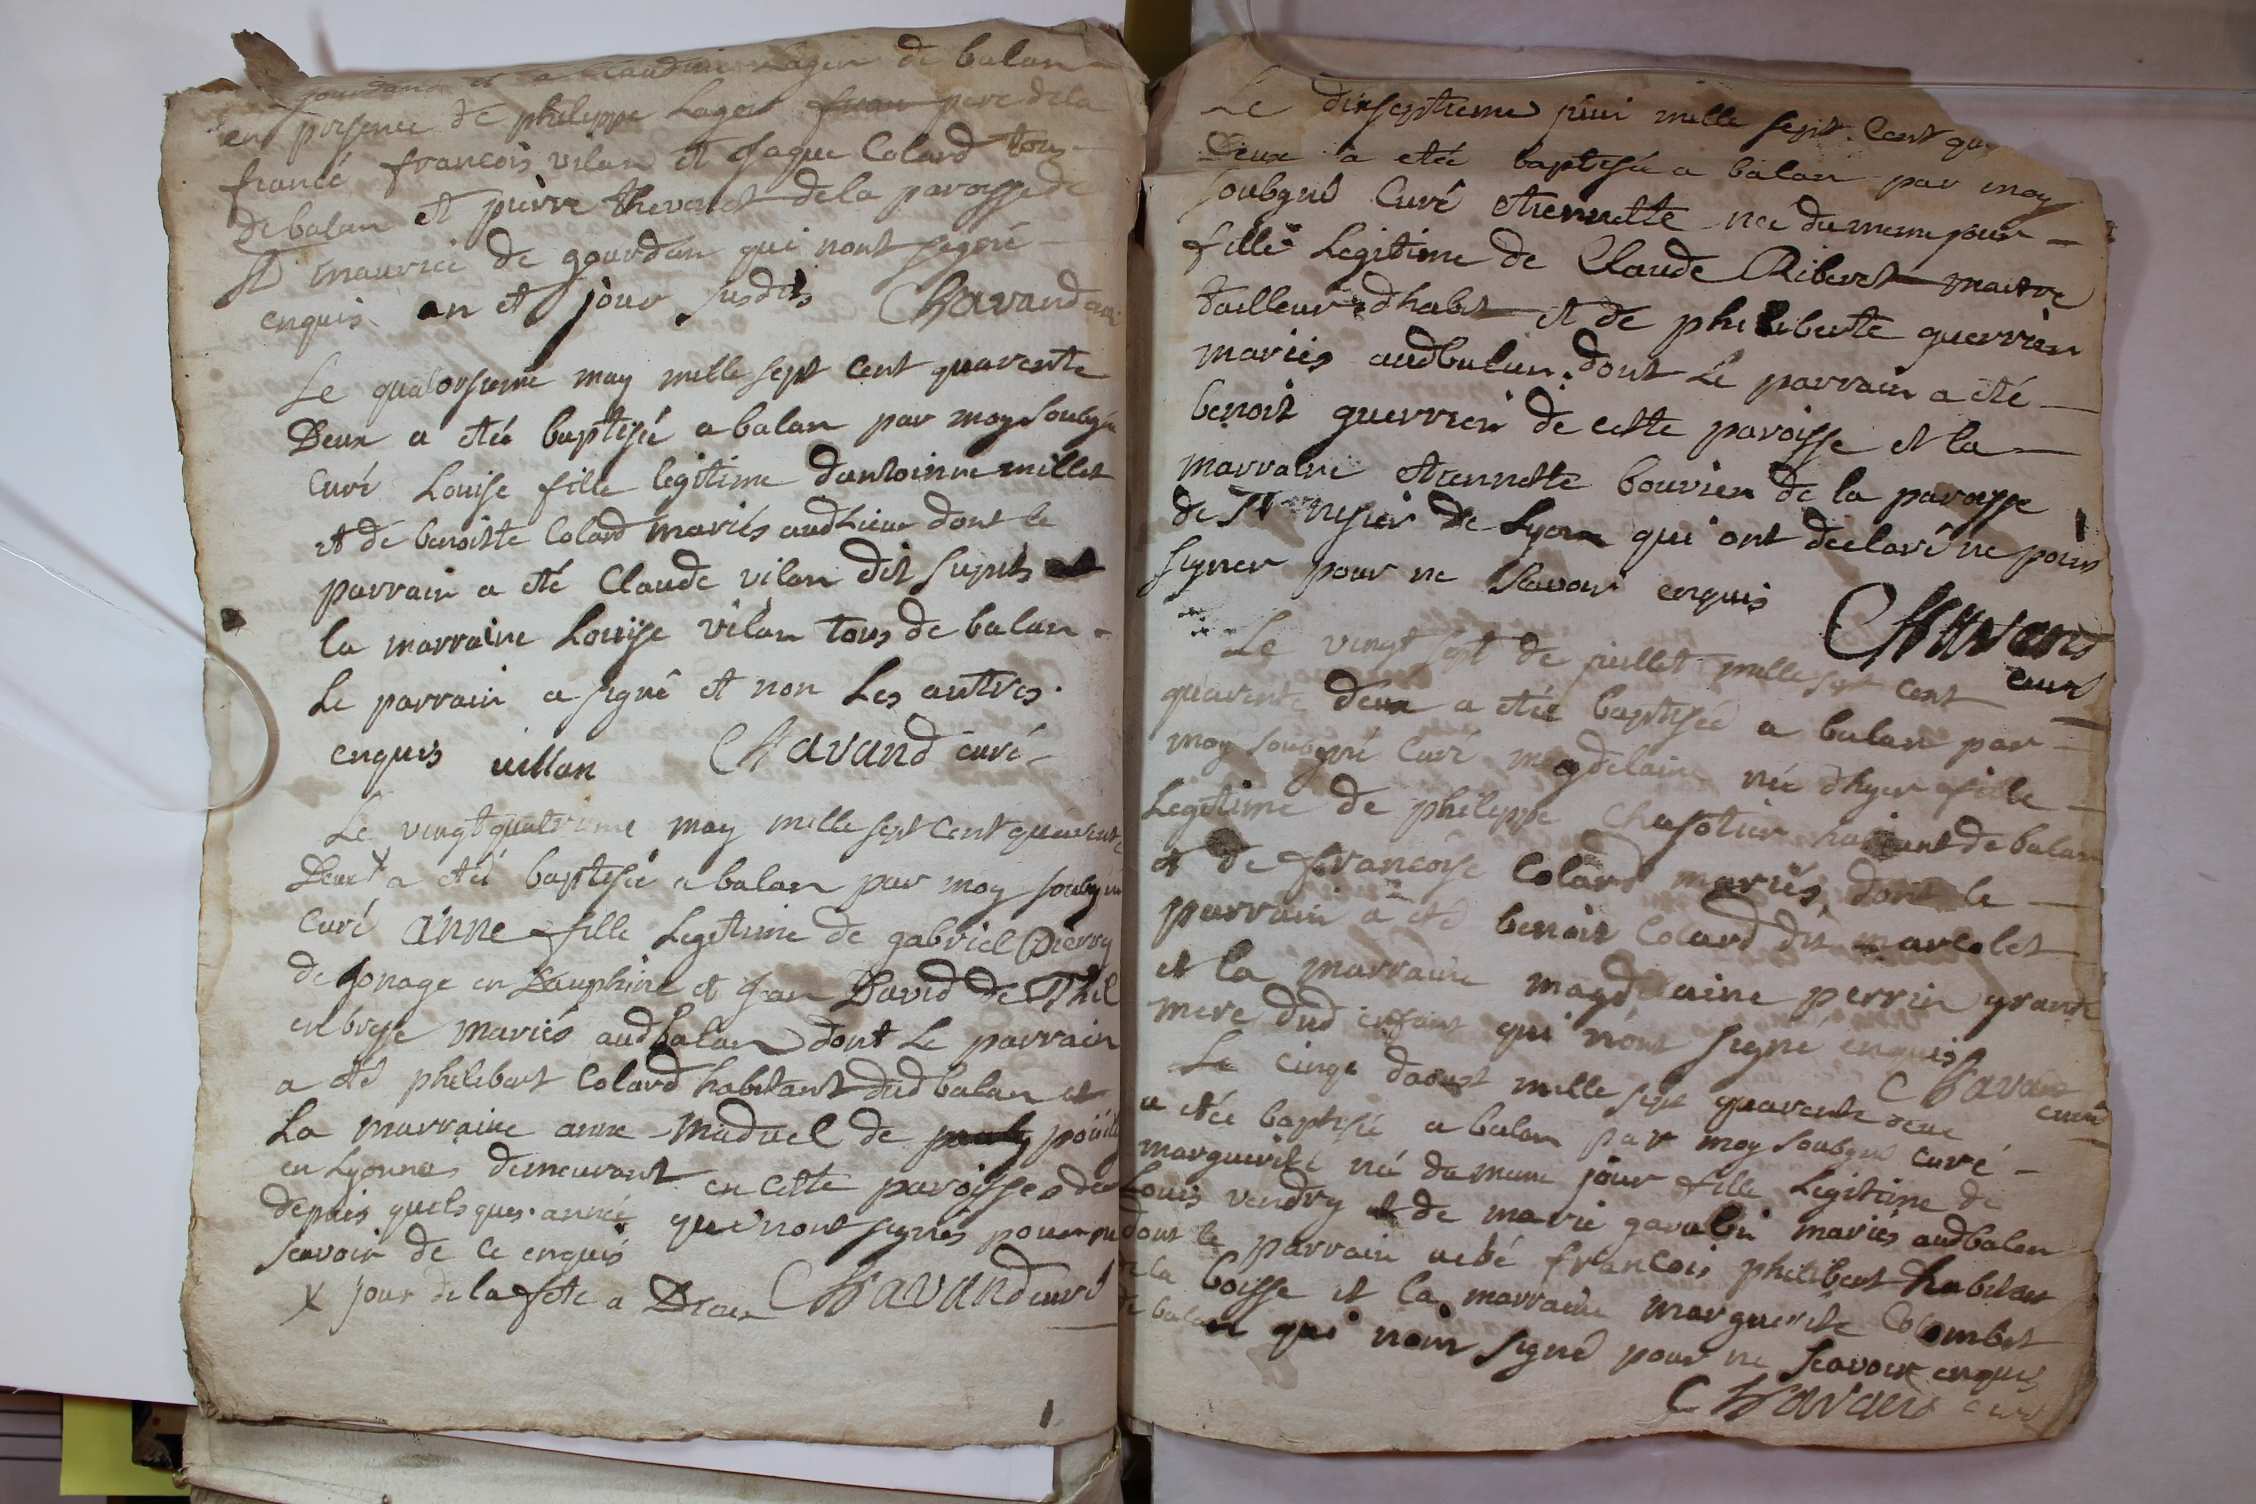 de balan
en presence de philippe Lager pere de la
fiancé francois vilan et Jaque Colard tous
de balan et pierre thevenet de la paroisse de
St maurice de gourdan qui nont signé
enquis an et jour susdits Chavand curé
Le quatorsieme may mille sept cent quarente
Deux a etée baptisée a balan par moy soubgné
Curé Louise fille legitime dantoinne millet
et de benoitte Colard mariés audlieu dont le
parrain a eté Claude vilan dit et
la marraine Louise vilan tous de balan
Le parrain a signé et non Les autres
enquis villan Chavand curé
Le vingt quatrieme may mille sept cent quarente
Deux x a eté baptisée a balan par moy soubgné
Curé anne fille Legitime de gabriel Pierry
de Jonage en Dauphiné et Jean David de Thil
en bresse mariés audbalan dont Le parrain
a eté philibert Colard habitant dudbalan et
La marraine anne maduel de
en Lyonnes demeurant en cette paroisse
depuis quelsques année qui nont signés pour ne
scavoir de ce enquis
x jour de la fete a Dieu Chavand curé
Le dixseptieme juin mille sept Cent
Deux a etée baptisée a balan par moy
soubgné Curé etiennette née du meme jour
fille Legitime de Claude Riberet maitre
tailleur dhabit et de philiberte guerrier
mariés audbalan dont Le parrain a eté
benoit guerrier de cette paroisse et la
marraine etiennette bouvier de la paroisse
de St nisier de Lyon qui ont declaré ne
signer pour ne scavoir enquis Chavand
curé
Le vingt sept de juillet mille sept cent
quarente deux a etée baptisée a balan par
moy soubgné Curé magdelaine née dhyer fille
Legitime de philippe Chasotier habitant de balan
et de francoise Colard mariés, dont le
parrain a eté benoit Colard dit marcolet
et la marraine magdelaine perrin grande
mere dud enfant qui nont signé enquis
Chavand curé
Le cinqe daoust mille sept quarente deux
a etée baptisée a balan par moy soubgné curé
marguerite née du meme jour fille Legitime de
Louis vendry et de marie mariés audbalan
dont le parrain a francois philibert habitant
de la boisse et la marraine marguerite Colombet
de balan qui nont signé pour ne scavoir enquis
Chavand curé